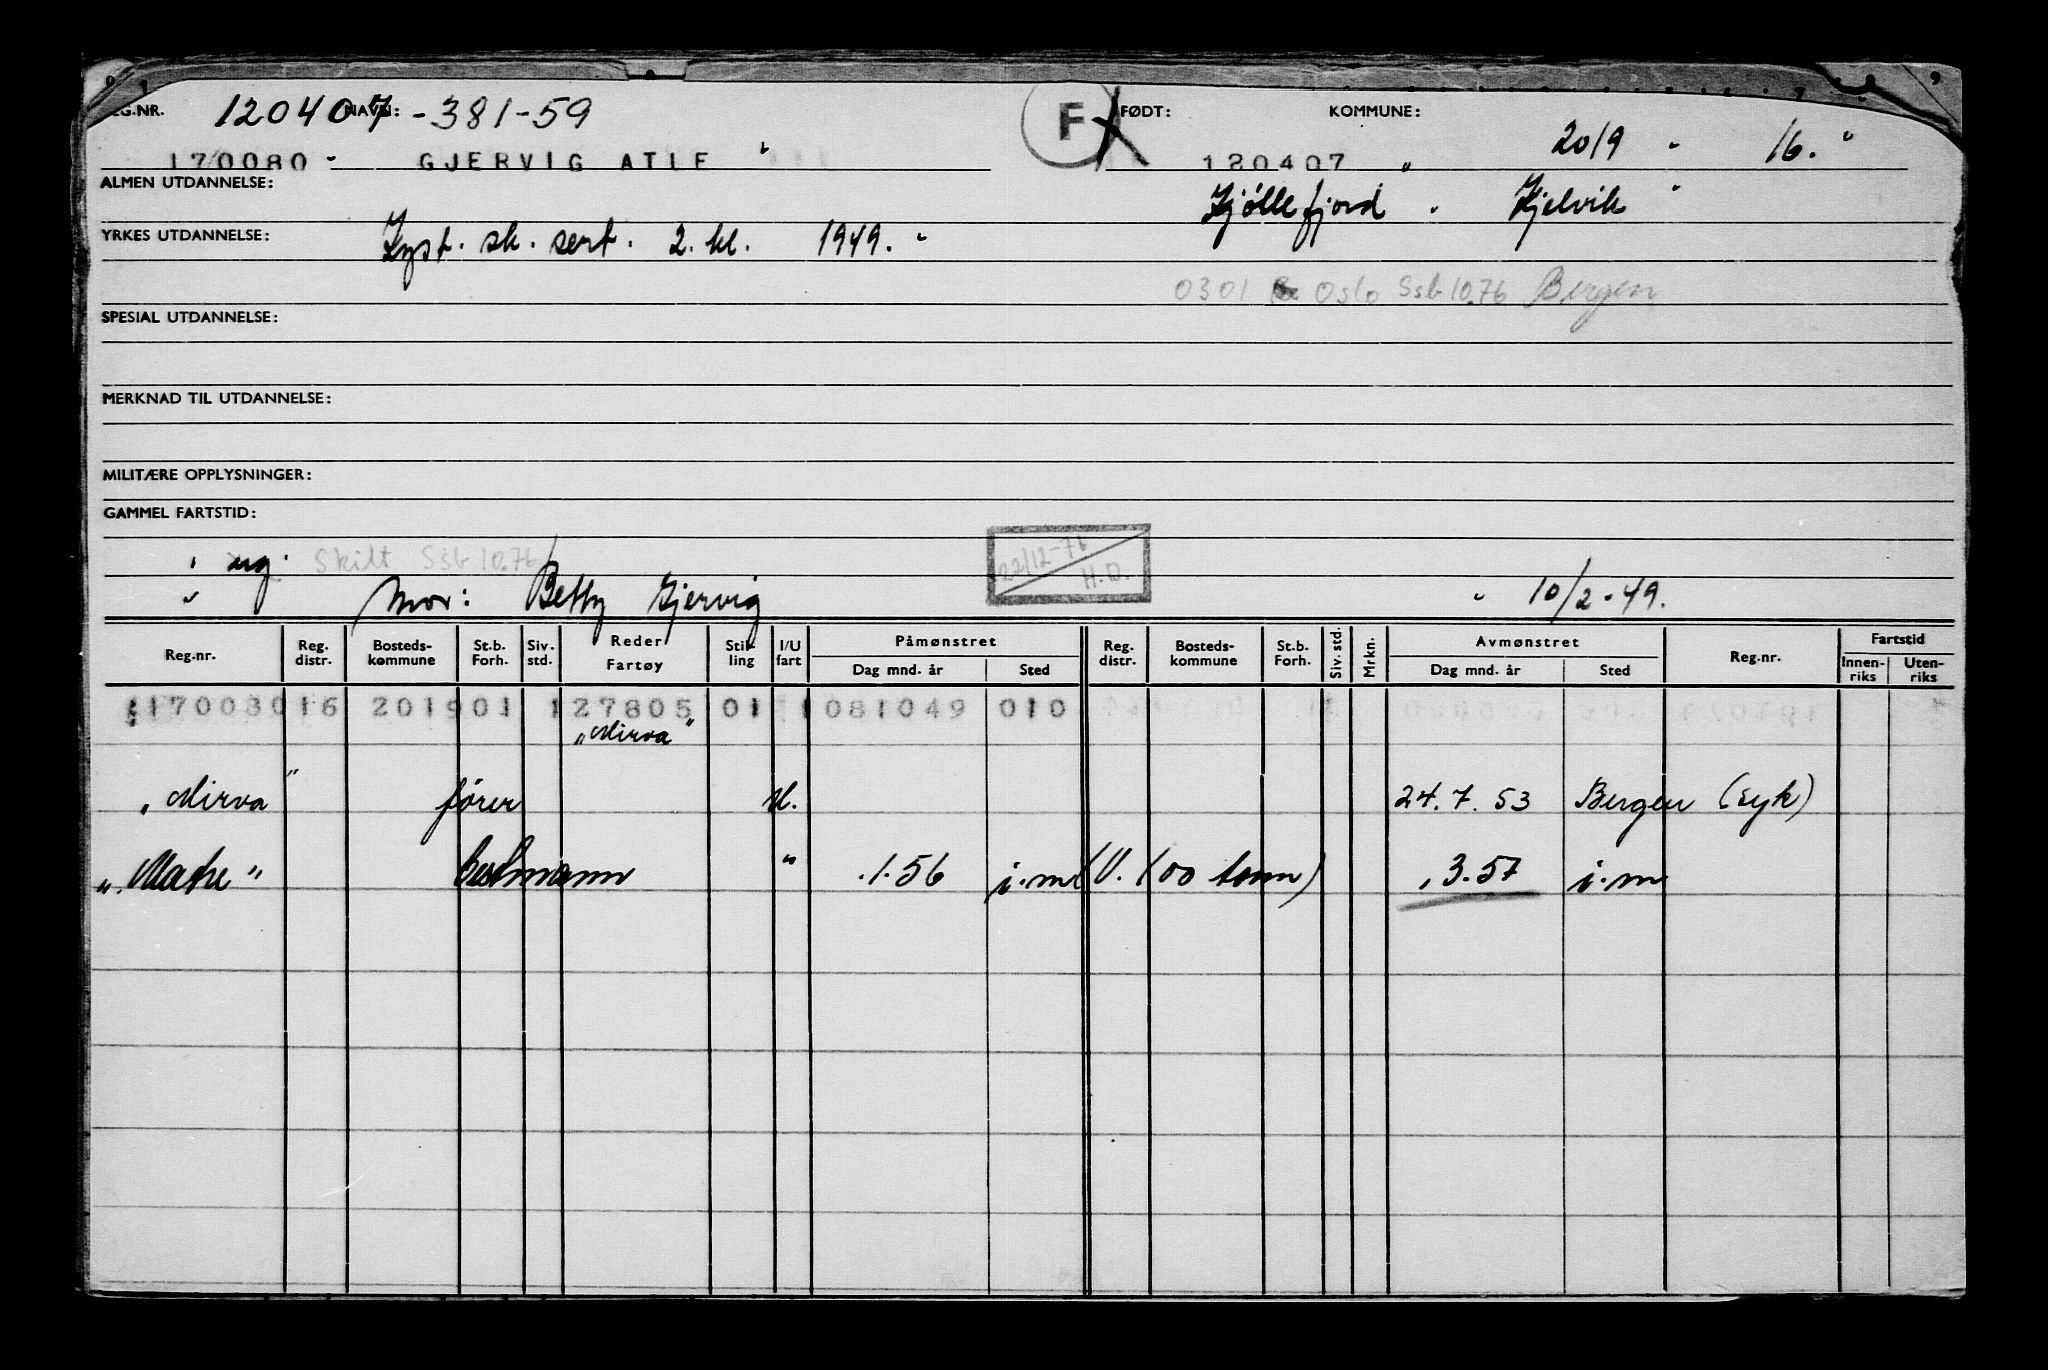 REG.NR. NAVN: 120407-381-59 F FØDT: KOMMUNE:
170080 GJERVIG ATLE 120407 2019 16.
ALMEN UTDANNELSE: Kjøllefjord Kjelvik
YRKES UTDANNELSE: Kyst. sk. sert. 2. kl. 1949.
0301 Oslo Ssb 10.76 Bergen
SPESIAL UTDANNELSE:
MERKNAD TIL UTDANNELSE:
MILITÆRE OPPLYSNINGER:
GAMMEL FARTSTID:
ug. Skilt Ssb 10.76 22/12-76 H.D.
Mor: Betty Gjervig 10/2-49.
Reg.nr. Reg. distr. Bosteds-kommune St.b. Forh. Siv. std. Reder Fartøy Stilling I/U fart Påmønstret Dag mnd. år Sted Reg. distr. Bosteds-kommune St.b. Forh. Siv. std. Mrkn. Avmønstret Dag mnd. år Sted Reg.nr. Fartstid Innen-riks Uten-riks
170080 16 2019 01 1 27805 01 1 081049 010
"Mirva"
"Mirva" fører U. 24.7.53 Bergen (syk)
bestmann " .1.56 i.m. (U. 100 tonn) .3.57 i.m